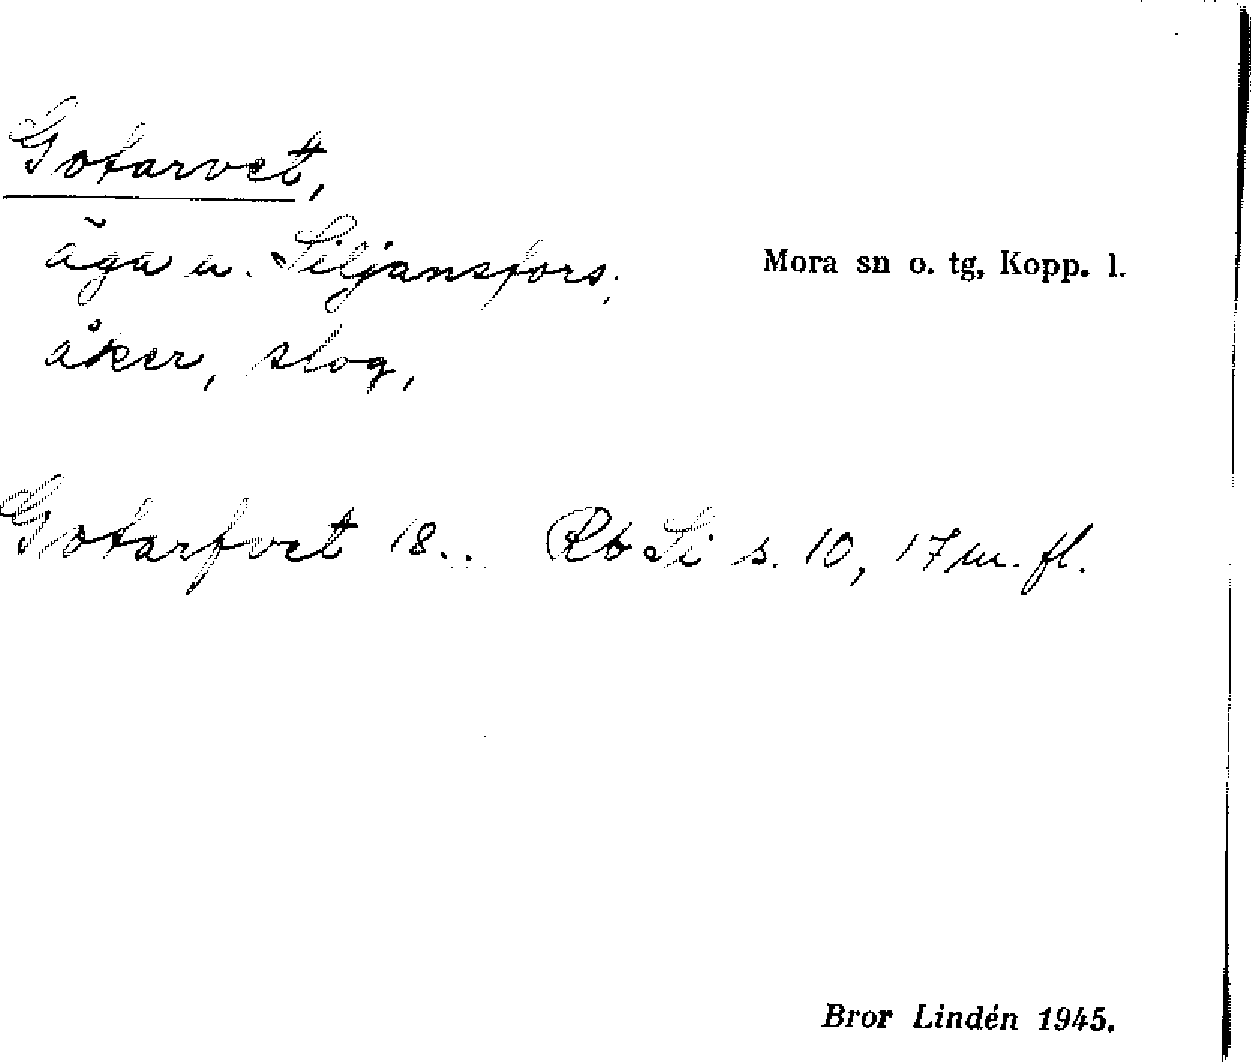 Gotarvet,
äga u. Siljansfors;
Mora sn o. tg, Kopp. l.
åker, slog,
Gotarfvet 18.. Rb Si s. 10, 17 m. fl.
Bror Lindén 1945.